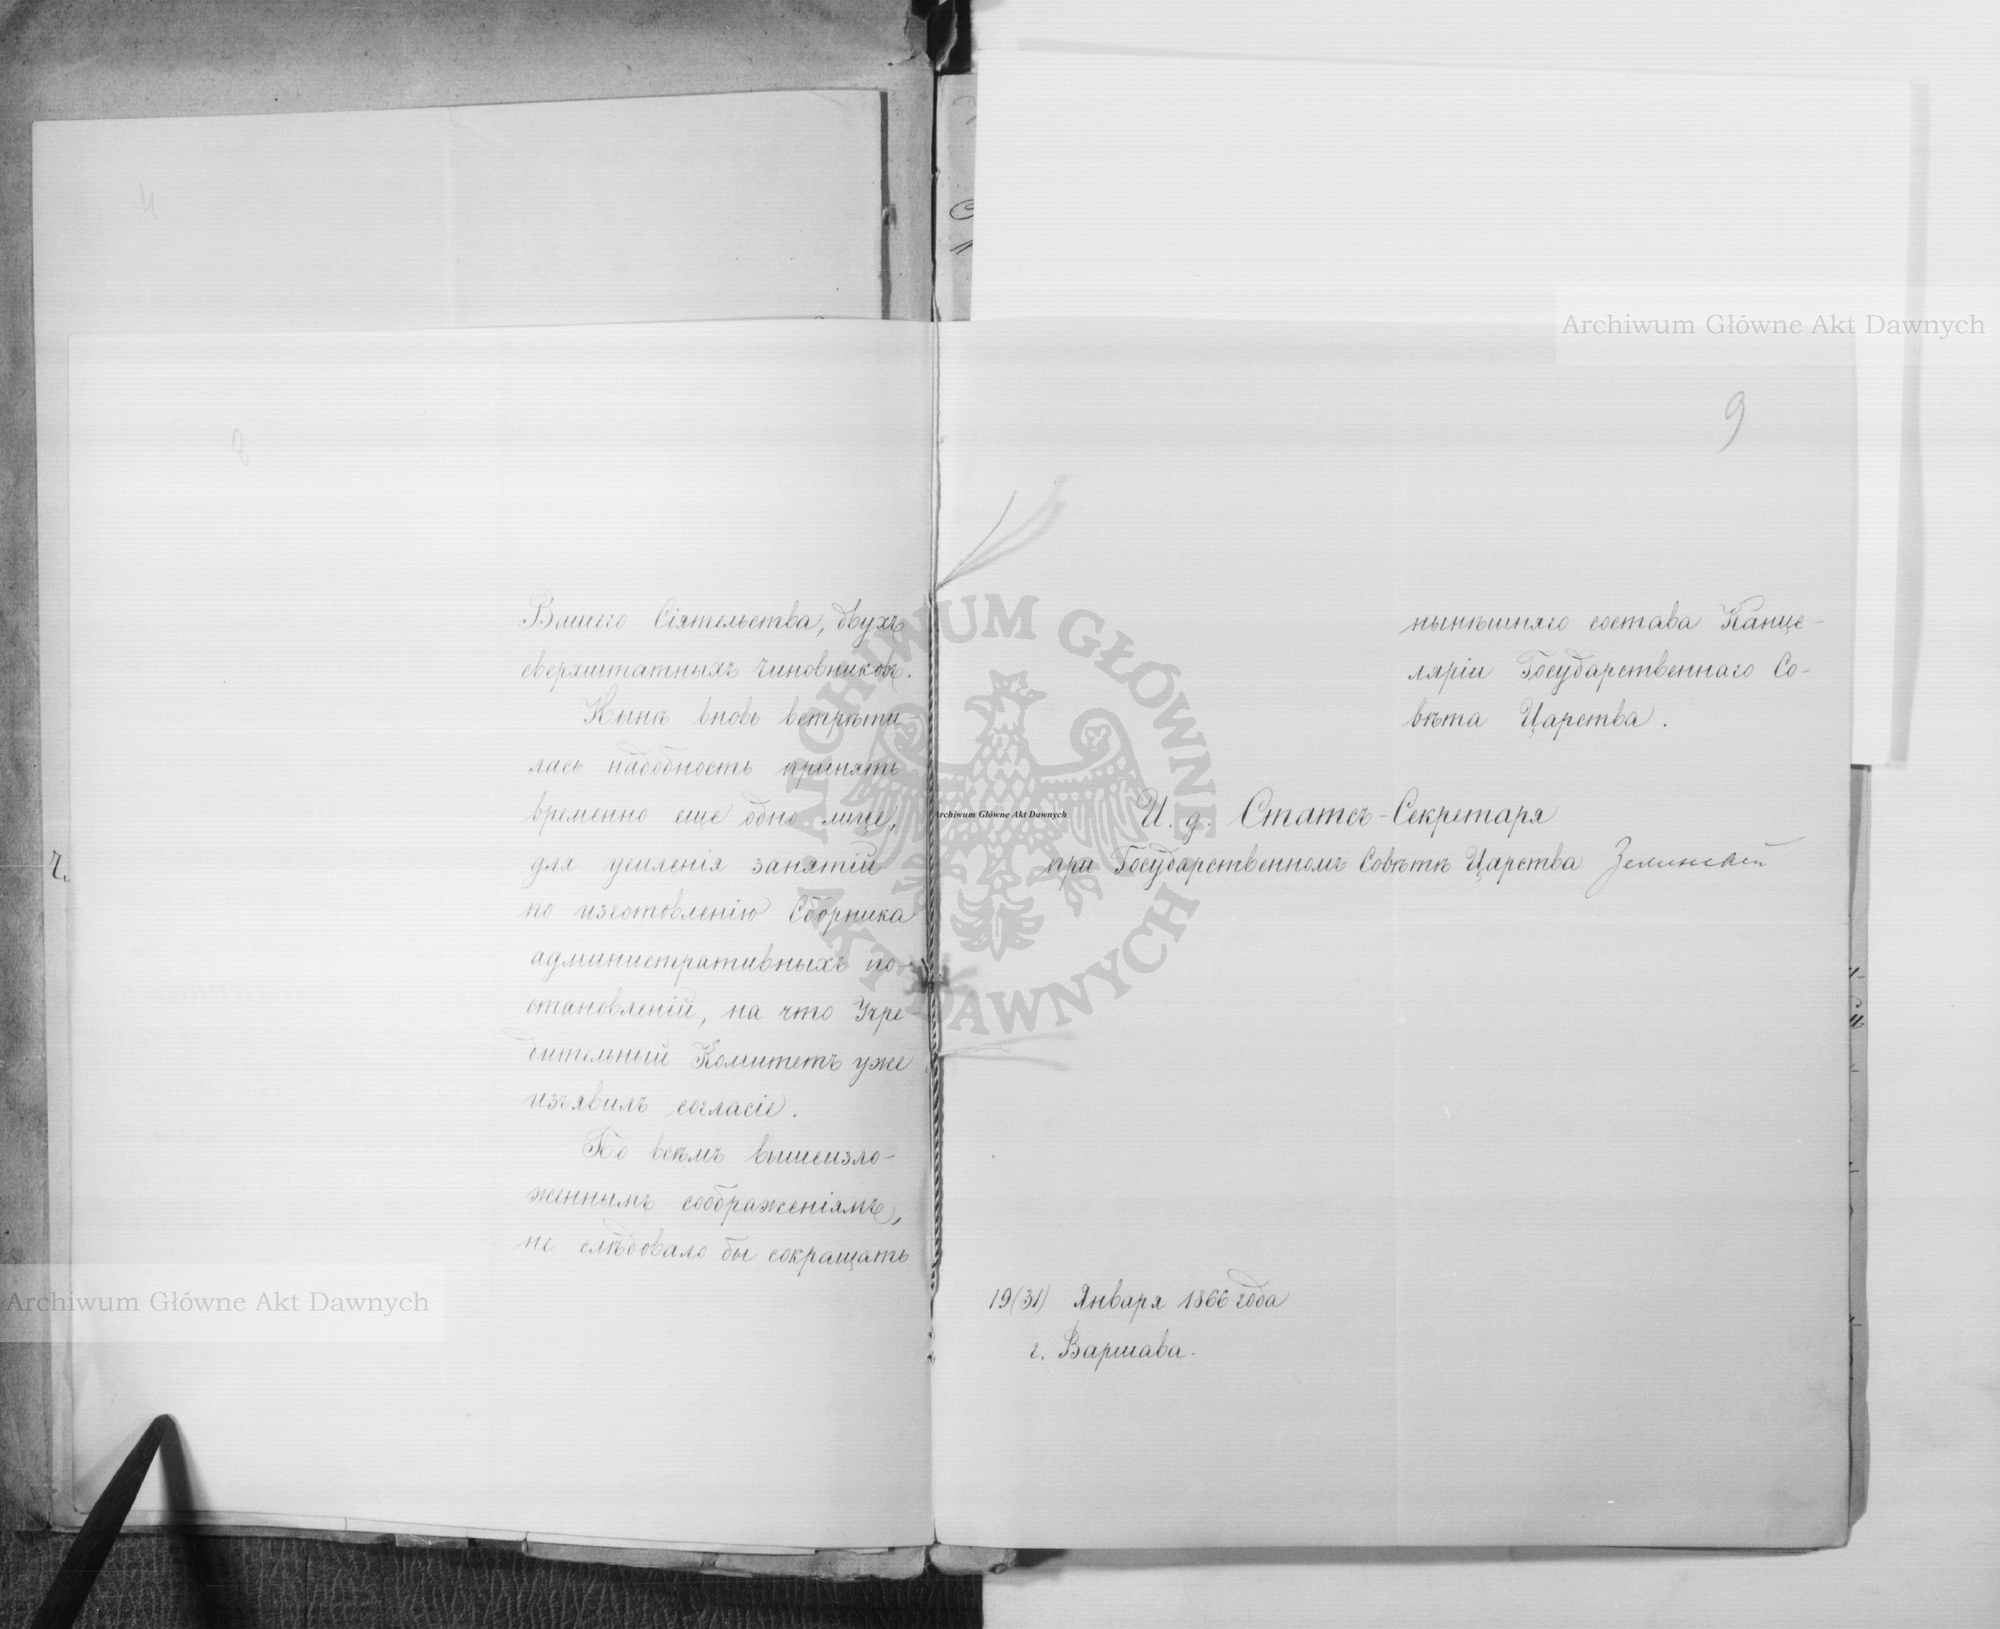 Вашего Сіятельства, двухъ
сверхштатныхъ чиновниковъ.
Нынѣ вновь встрѣти
лась надобность принять
временно еще одно лице,
для усиленія занятій
по изготовленію Сборника
административныхъ по-
становленій, на что Учре
дительный Комитетъ уже
изъявилъ согласіе.
По всѣмъ вышеизло-
женнымъ соображеніямъ,
не слѣдовало бы сокращать
9
нынѣшняго состава Канце-
ляріи Государственнаго Со-
вѣта Царства.
И. д. Статсъ-Секретаря
при Государственномъ Совѣтѣ Царства Зелинскій
19(31) Января 1866 года
г. Варшава.
Archiwum Główne Akt Dawnych
Archiwum Główne Akt Dawnych
Archiwum Główne Akt Dawnych
ARCHIWUM GŁÓWNE AKT DAWNYCH